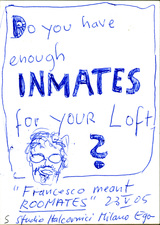 Do you have
enough
INMATES
for YOUR Loft
?
"Francesco meant
ROOMATES" 23 V 05
S Studio Halcernici Milano Ego